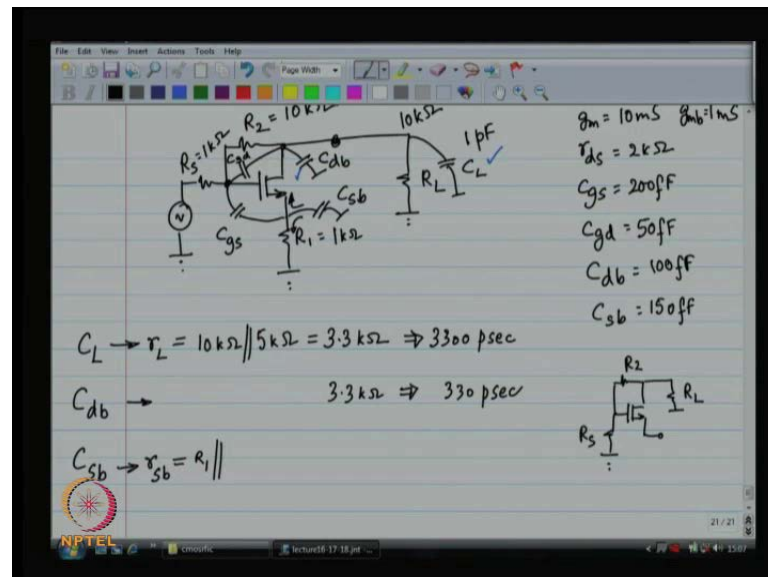 File Edit View Insert Actions Tools Help
Page Width
R_2 = 10kΩ
10kΩ
1pF
g_m = 10mS g_mb = 1mS
R_S = 1kΩ
C_gd
C_db
R_L
C_L ✓
r_ds = 2kΩ
C_gs
C_sb
R_1 = 1kΩ
C_gs = 200fF
C_gd = 50fF
C_db = 100fF
C_sb = 150fF
C_L → r_L = 10kΩ || 5kΩ = 3.3kΩ ⇒ 3300 psec
C_db → 3.3kΩ ⇒ 330 psec
C_sb → r_sb = R_1 ||
R2
R_L
R_S
21 / 21
NPTEL
cmosrfic
lecture16-17-18.jnt - ...
15:07